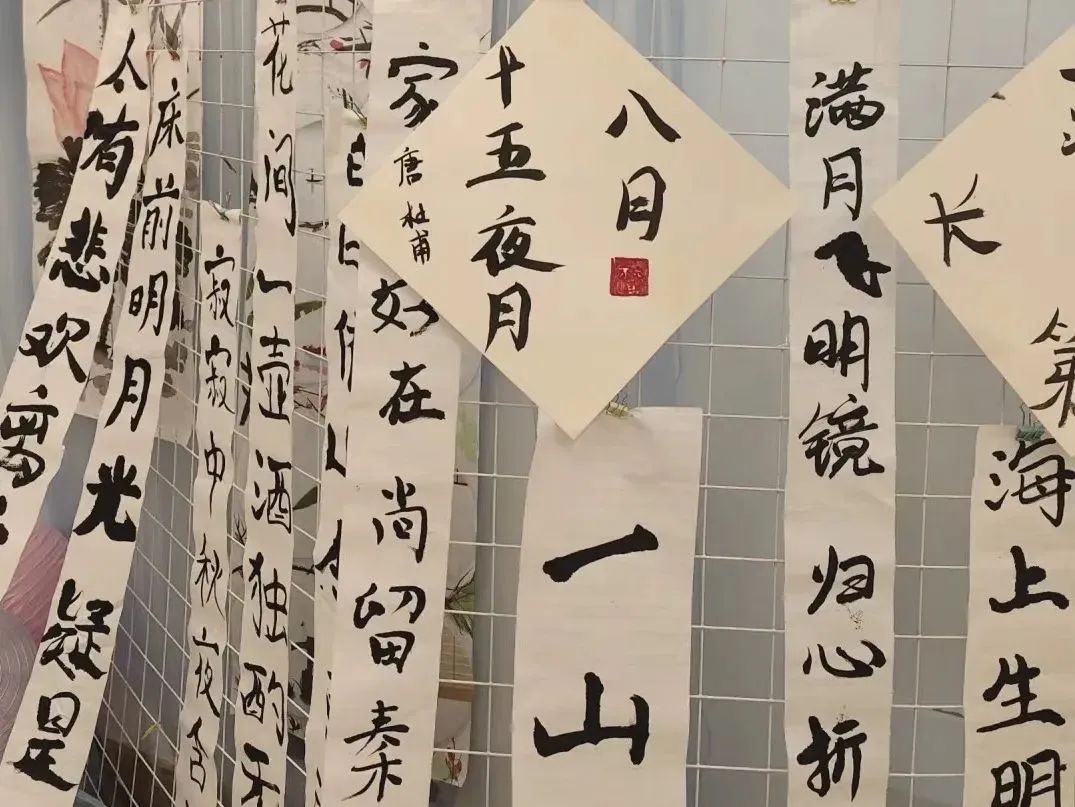 人有悲欢离
床前明月光疑是
寂寂中秋夜含
花间一壶酒独酌无
家
好在尚留秦
八月
十五夜月
唐杜甫
一山
满月飞明镜归心折
长
海上生明